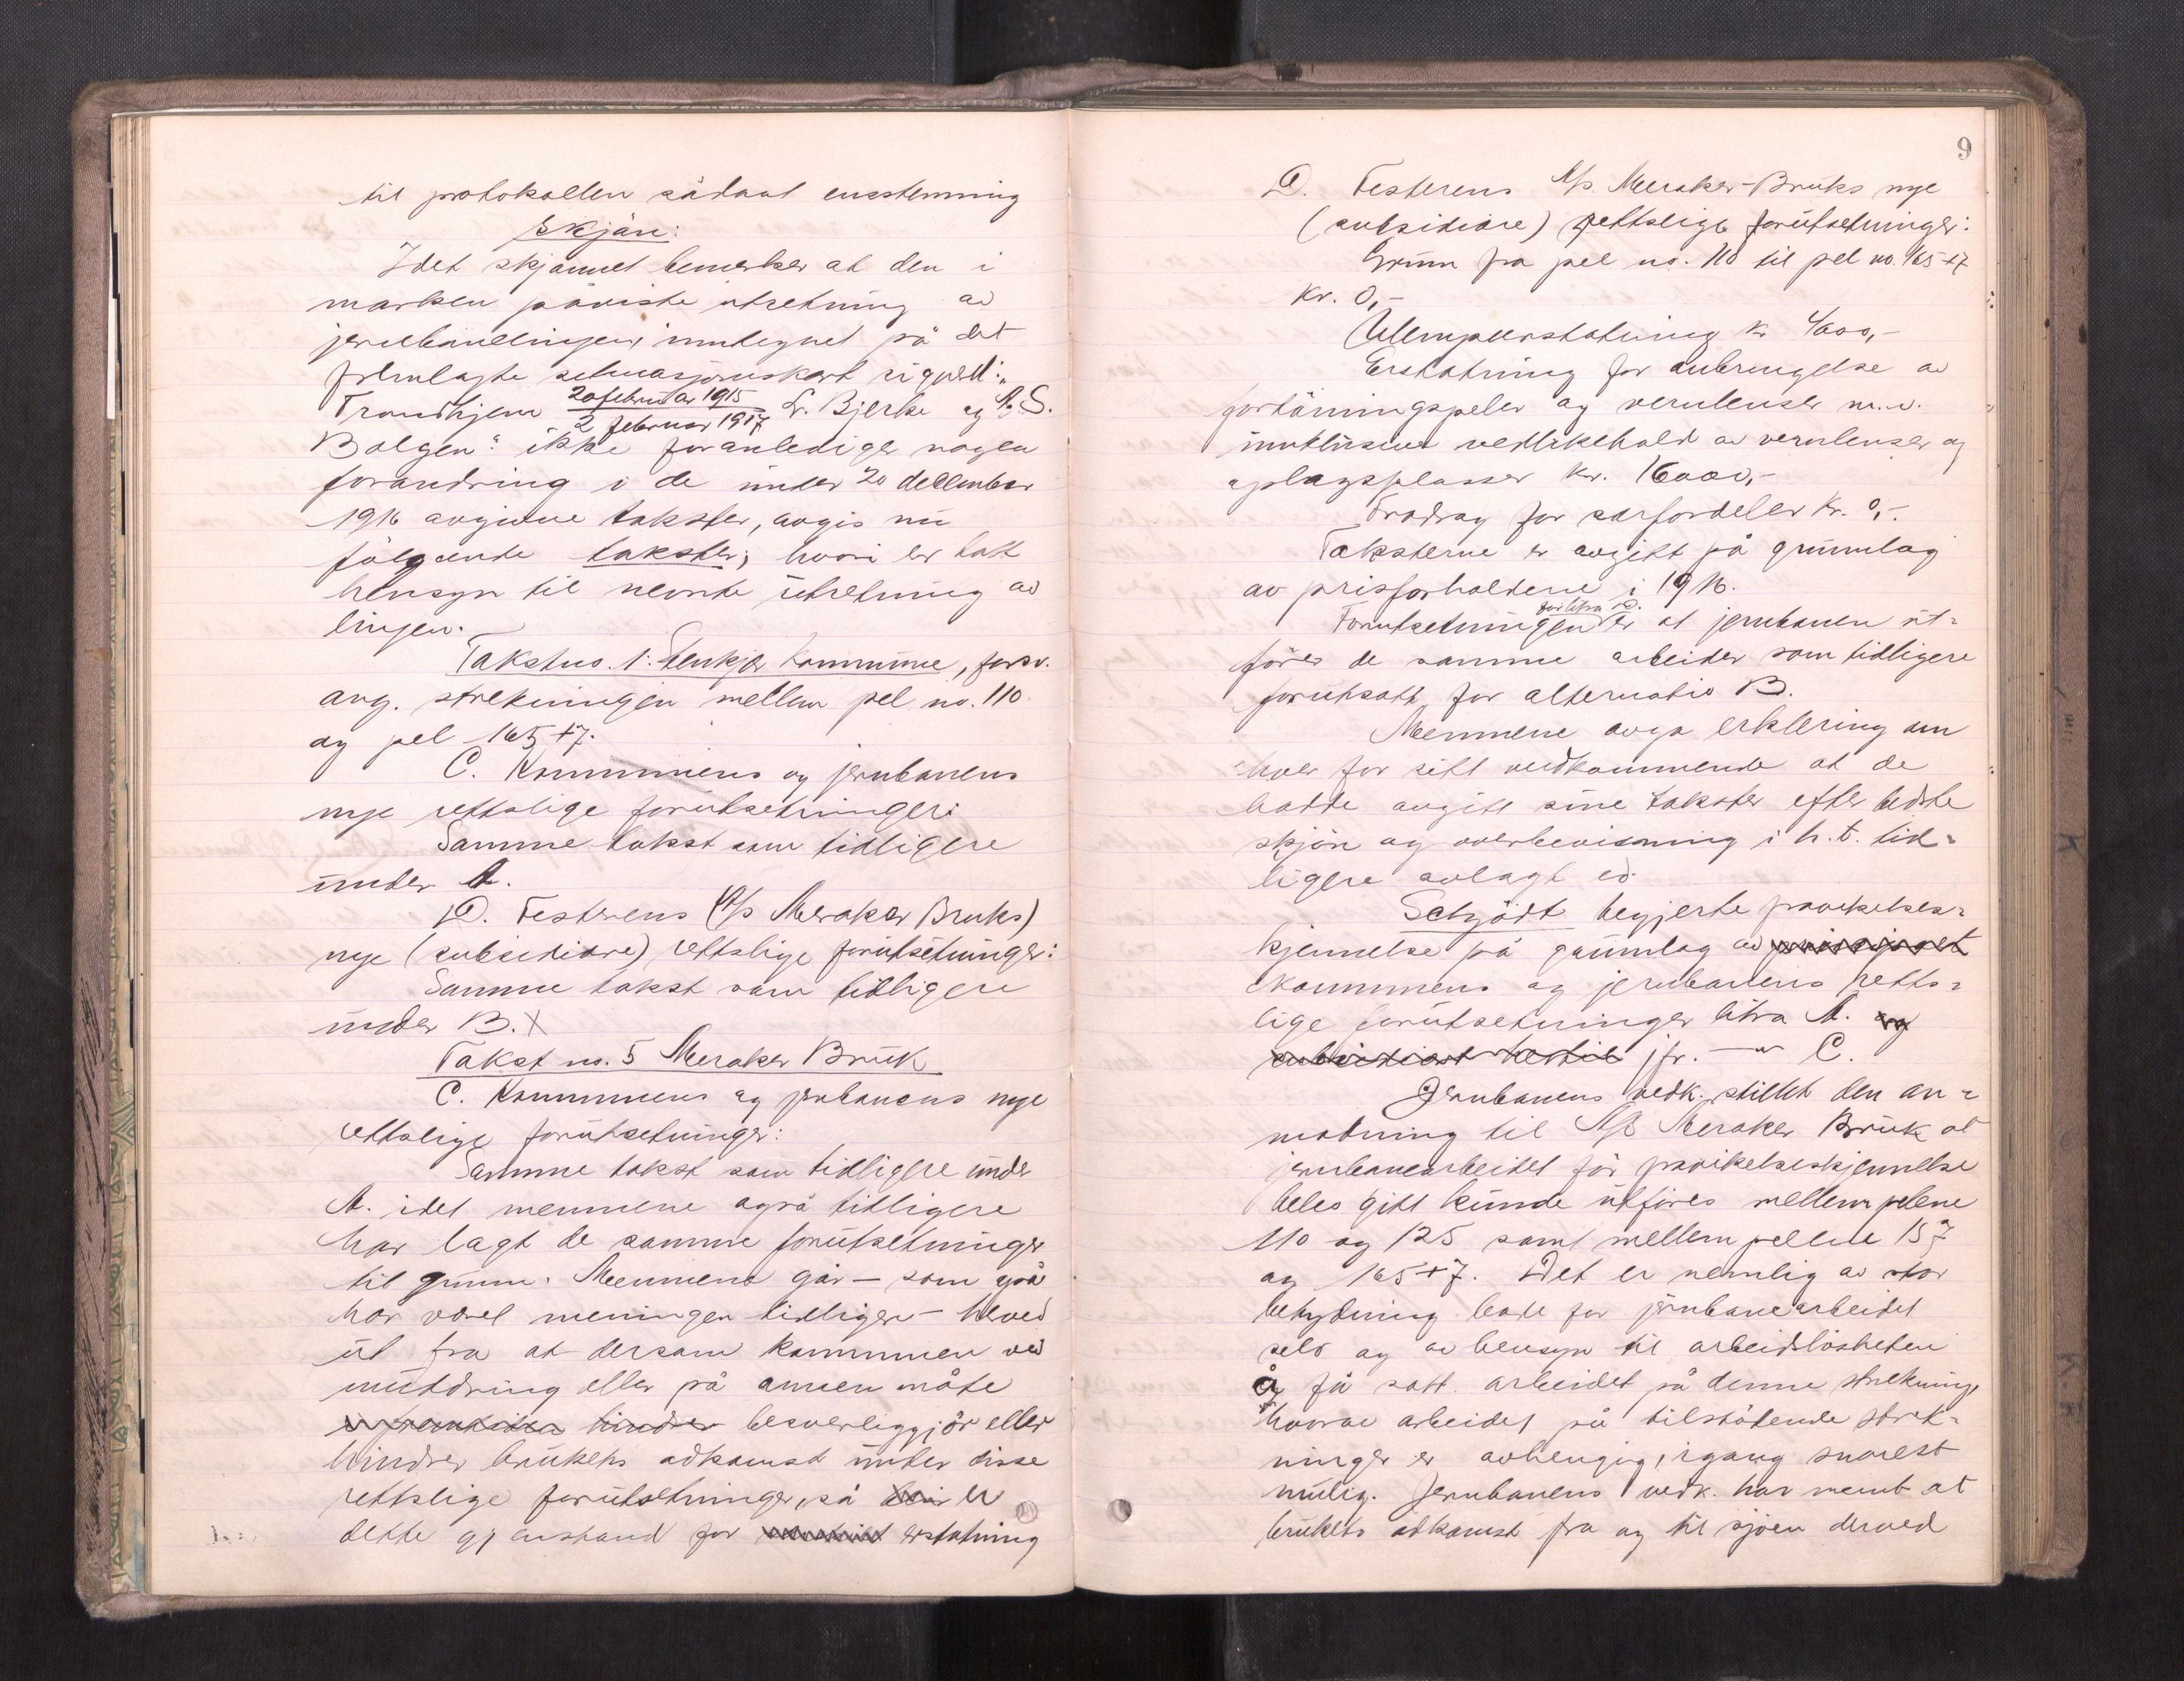 til protokollen sådant enstemmig
skjøn:
Idet skjønnet bemerker at den i
marken påviste utretning av
jernbanelinjen, inntegnet på det
fremlagte situasjonskart signert: „
Trondhjem 20 februar 1915 / 2 februar 1917 L. Bjerke og A. S.
Bolgen“ ikke foranlediger nogen
forandring i de under 20 december
1916 avgivne takster, avgis nu
følgende takster, hvori er tatt
hensyn til nevnte utretning av
linjen. —
Takst no. 1: Stenkjær Kommune, forsv.
ang. strekningen mellem pel no. 110
og pel 165+7.
C. Kommunens og jernbanens
nye rettslige forutsetninger:
Samme takst som tidligere
under A.
D. Festerens (A/S Meraker Bruks)
nye (subsidiære) rettslige forutsetninger:
Samme takst som tidligere
under B. X
Takst no. 5 Meraker Bruk
C. Kommunens og jernbanens nye
rettslige forutsetninger:
Samme takst som tidligere under
A. idet mennene også tidligere
har lagt de samme forutsetninger
til grunn. Mennene går — som også
har været meningen tidligere — herved
ut fra at dersom kommunen ved
mudring eller på annen måte
i fremtiden hindrer besverliggjør eller
hindrer brukets adkomst under disse
rettslige forutsetninger, så er
dette gjenstand for erstatning
9
D. Festerens A/S Meraker-Bruks nye
(subsidiære) rettslige forutsetninger:
Grunn fra pel no. 110 til pel no. 165+7
kr. 0,-
Ulempeerstatning kr. 4000,-
Erstatning for anbringelse av
fortøiningspeler og vernlenser m.v.
innklusive vedlikehold av vernlenser og
oplagsplasser kr. 16000,-
Fradrag for særfordeler kr. 0,-.
Taksterne er avgitt på grunnlag
av prisforholdene i 1916.
for litra D.
Forutsetningen er at jernbanen ut-
fører de samme arbeider som tidligere
forutsatt for alternativ B.
Mennene avga erklering om
hver for sitt vedkommende at de
hadde avgitt sine takster efter bedste
skjøn og overbevisning i h. t. tid-
ligere avlagt ed.
Schjødt begjerte fravikelses-
kjennelse på grunnlag av prinsipalt
kommunens og jernbanens retts-
lige forutsetninger litra A. og
subsidiært hertil jfr. —"— C.
Jernbanens vedk. stillet den an-
modning til A/S Meraker Bruk at
jernbanearbeidet før fravikelseskjennelse
beles gitt kunde utføres mellem pelene
110 og 125 samt mellem pelene 157
og 165+7. Det er nemlig av stor
betydning både for jernbanearbeidet
selv og av hensyn til arbeidsløsheten
å få satt arbeidet på denne strekning,
hvorav arbeidet på tilstøtende strek-
ninger er avhengig, igang snarest
mulig. Jernbanens vedk. har ment at
brukets adkomst fra og til sjøen derved